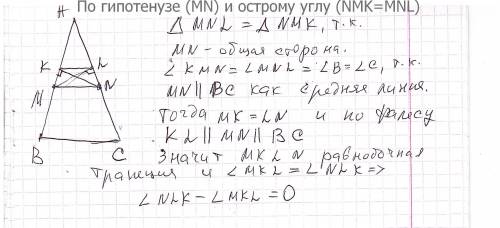 По гипотенузе (MN) и острому углу (NMK=MNL)
Δ MNL = Δ NMK, т.к.
MN - общая сторона.
∠KMN = ∠MNL = ∠B = ∠C, т.к.
MN || BC как средняя линия.
Тогда MK = LN и по фалесу
KL || MN || BC
Значит MKLN равнобочная
трапеция и ∠MKL = ∠NLK =>
∠NLK - ∠MKL = 0
A
K
L
M
N
B
C